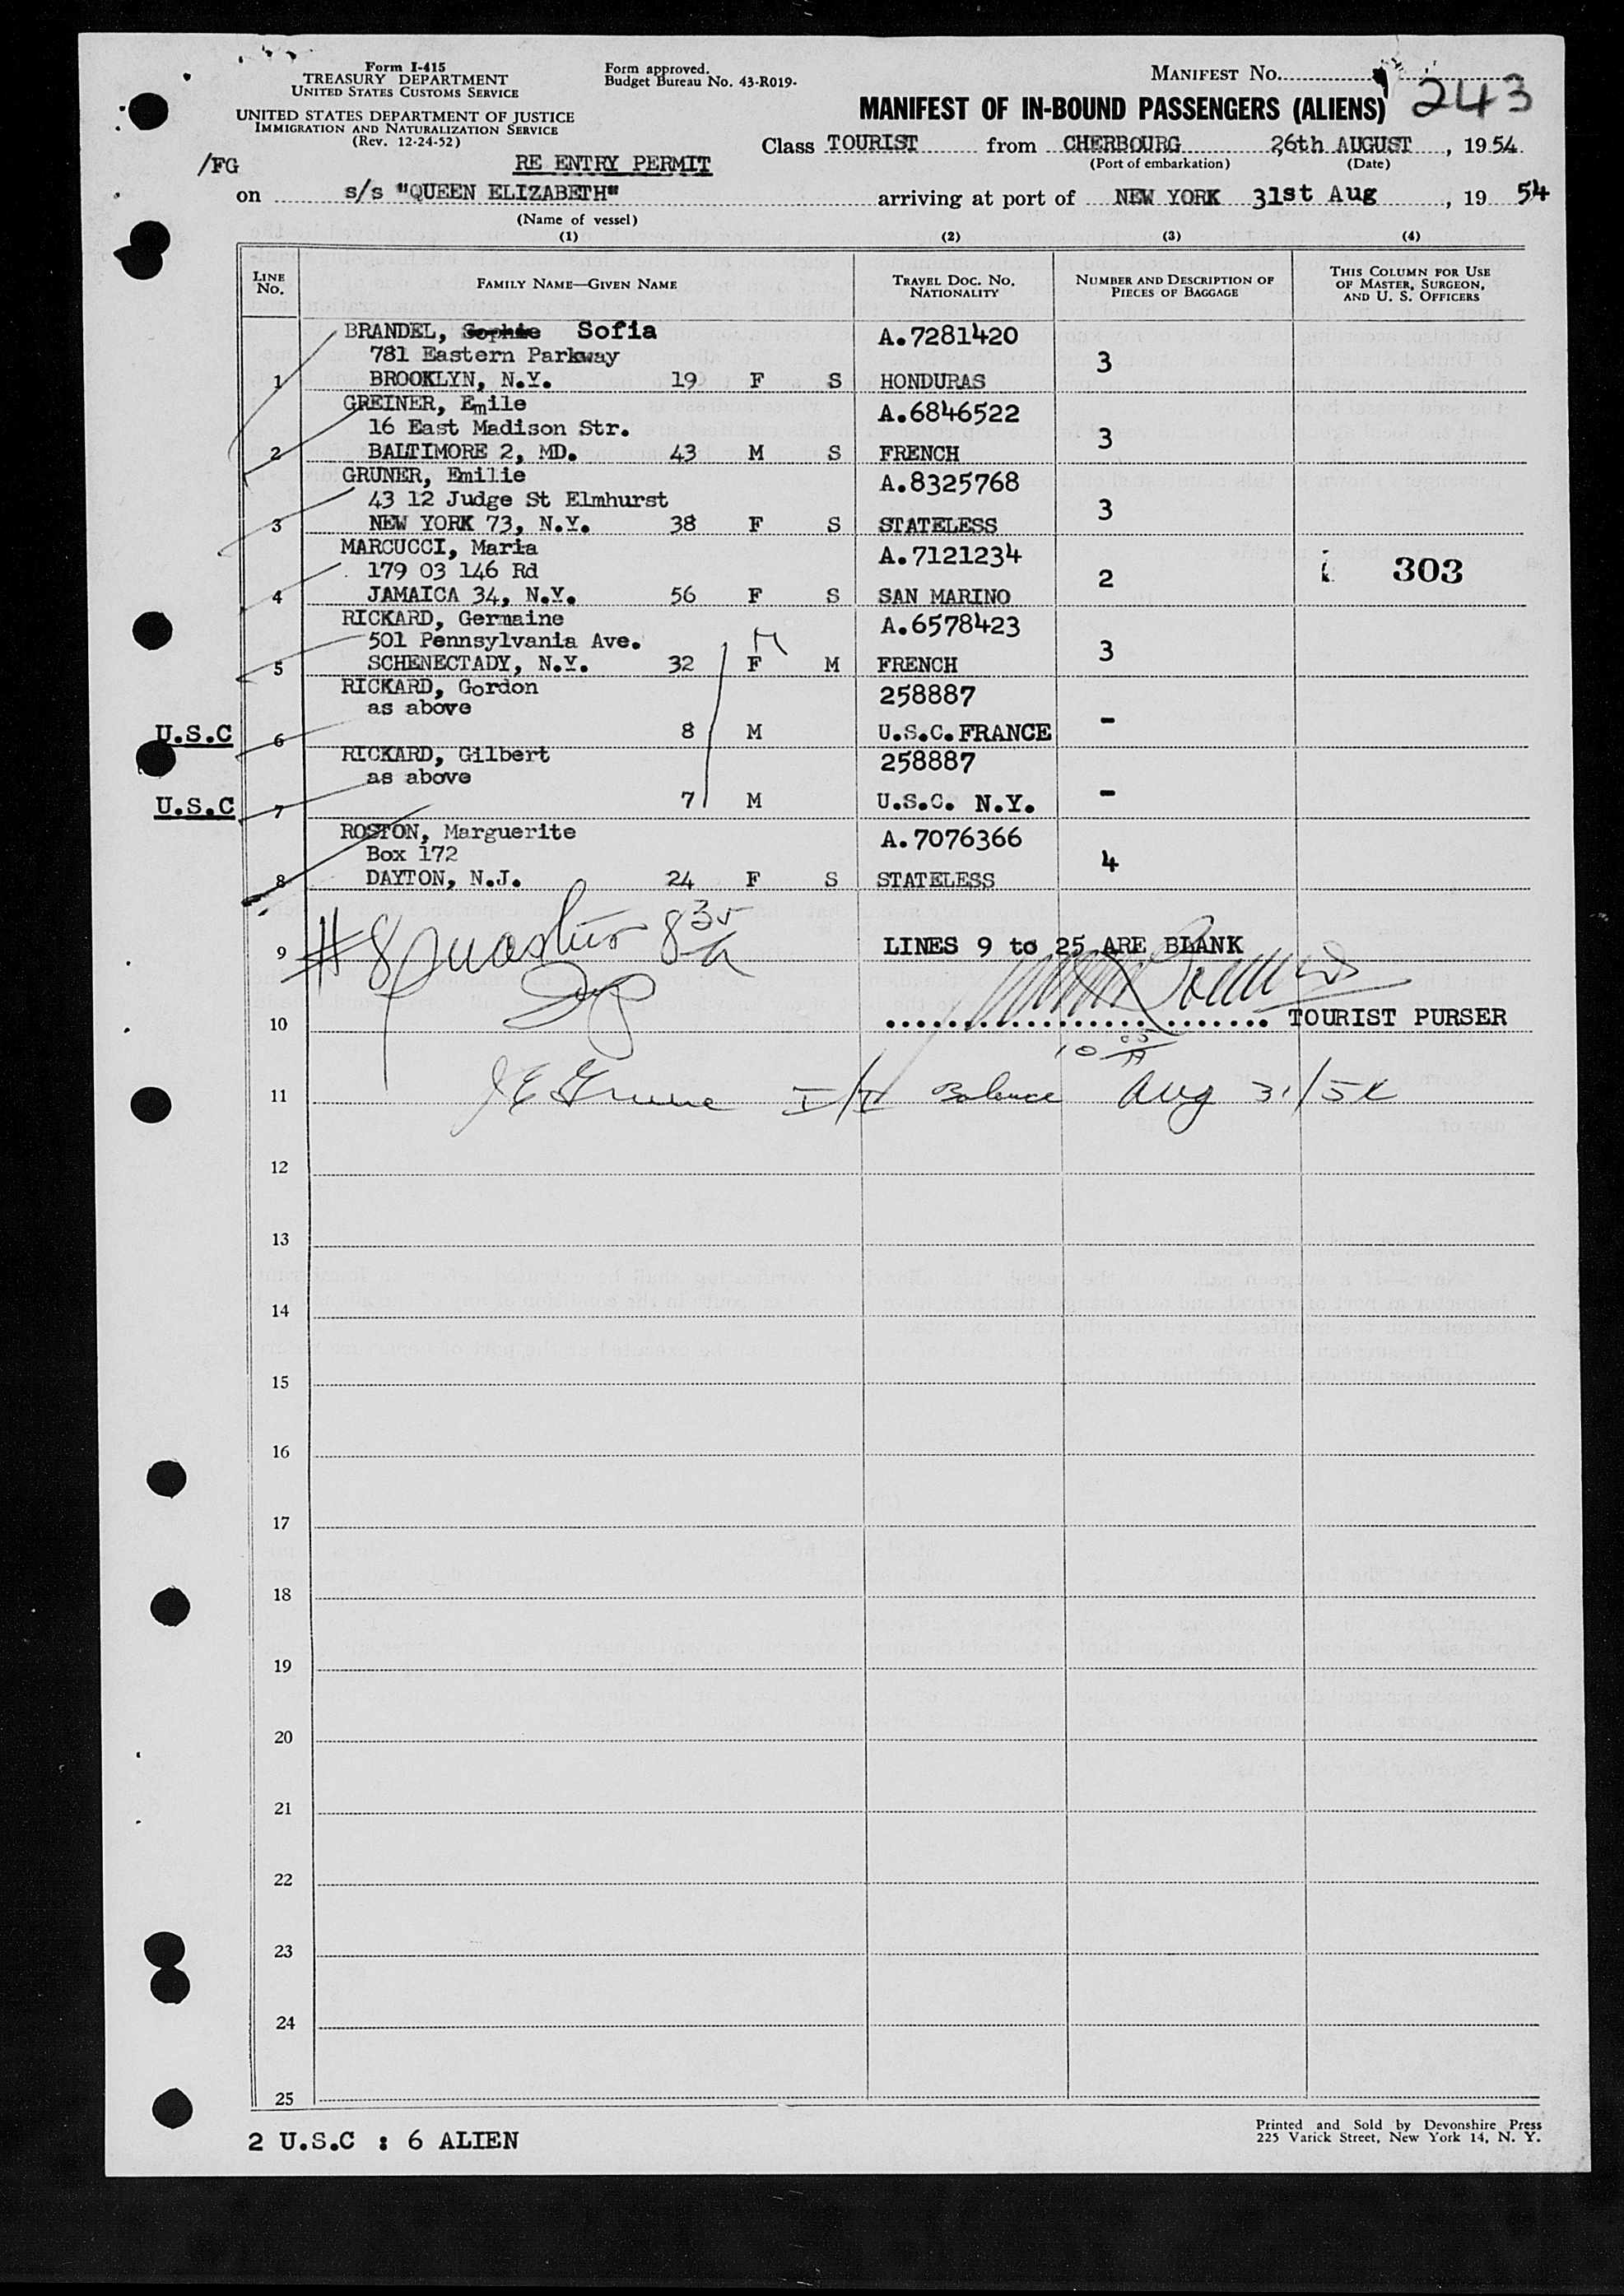 Form I-415
TREASURY DEPARTMENT
UNITED STATES CUSTOMS SERVICE
UNITED STATES DEPARTMENT OF JUSTICE
IMMIGRATION AND NATURALIZATION SERVICE
(Rev. 12-24-52)
Form approved.
Budget Bureau No. 43-R019-
MANIFEST No.
243
MANIFEST OF IN-BOUND PASSENGERS (ALIENS)
Class TOURIST from CHERBOURG 26th AUGUST, 1954
(Port of embarkation) (Date)
/FG RE ENTRY PERMIT
on s/s "QUEEN ELIZABETH" arriving at port of NEW YORK 31st Aug, 19 54
(Name of vessel)
(1) (2) (3) (4)
LINE No. FAMILY NAME—GIVEN NAME TRAVEL DOC. No. NATIONALITY NUMBER AND DESCRIPTION OF PIECES OF BAGGAGE THIS COLUMN FOR USE OF MASTER, SURGEON, AND U. S. OFFICERS
BRANDEL, Sophie Sofia A.7281420
781 Eastern Parkway 3
1 BROOKLYN, N.Y. 19 F S HONDURAS
GREINER, Emile A.6846522
16 East Madison Str. 3
2 BALTIMORE 2, MD. 43 M S FRENCH
GRUNER, Emilie A.8325768
43 12 Judge St Elmhurst 3
3 NEW YORK 73, N.Y. 38 F S STATELESS
MARCUCCI, Maria A.7121234
179 03 146 Rd 2 303
4 JAMAICA 34, N.Y. 56 F S SAN MARINO
RICKARD, Germaine A.6578423
501 Pennsylvania Ave. 3
5 SCHENECTADY, N.Y. 32 F M FRENCH
RICKARD, Gordon 258887
as above -
U.S.C 6 8 M U.S.C. FRANCE
RICKARD, Gilbert 258887
as above -
U.S.C 7 7 M U.S.C. N.Y.
ROSTON, Marguerite A.7076366
Box 172 4
8 DAYTON, N.J. 24 F S STATELESS
#8
9 LINES 9 to 25 ARE BLANK
10 TOURIST PURSER
11 Balance Aug 31/54
12
13
14
15
16
17
18
19
20
21
22
23
24
25
2 U.S.C : 6 ALIEN
Printed and Sold by Devonshire Press
225 Varick Street, New York 14, N. Y.